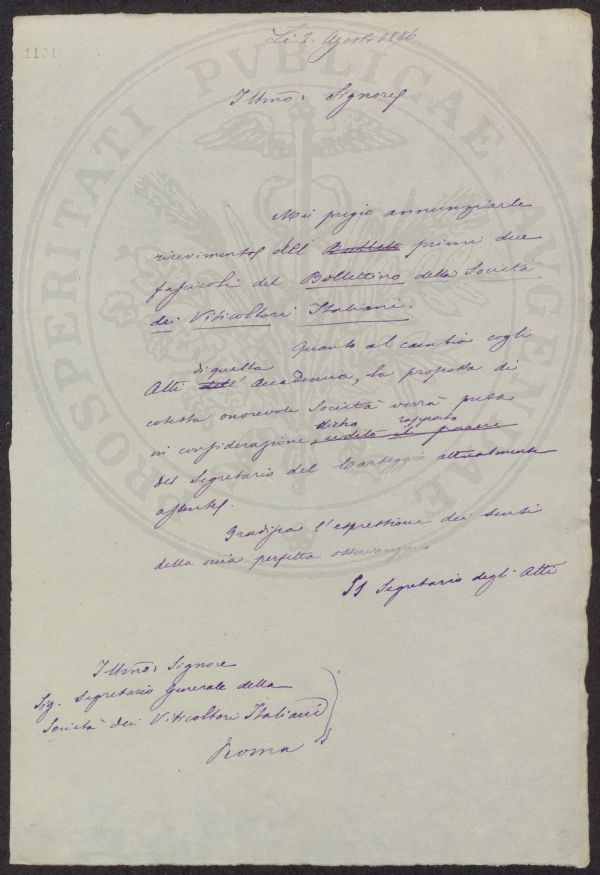 1101
Lì 2. Agosto 1886
Illmo: Signore
Mi pregio annunziarle
ricevimento dell Bullett primi due
fascicoli del Bollettino della Società
dei Viticoltori Italiani.
Quanto al cambio cogli
di questa
Atti dell' Accademia, la proposta di
cotesta onorevole Società verrà presa
dietro rapporto
in considerazione udito il parere
del Segretario del Carteggio attualmente
assente.
Gradisca l'espressione dei sensi
della mia perfetta osservanza
Il Segretario degli Atti
Illmo: Signore
Sig. Segretario Generale della
Società dei Viticoltori Italiani
Roma
PROSPERITATI PVBLICAE AVGENDAE